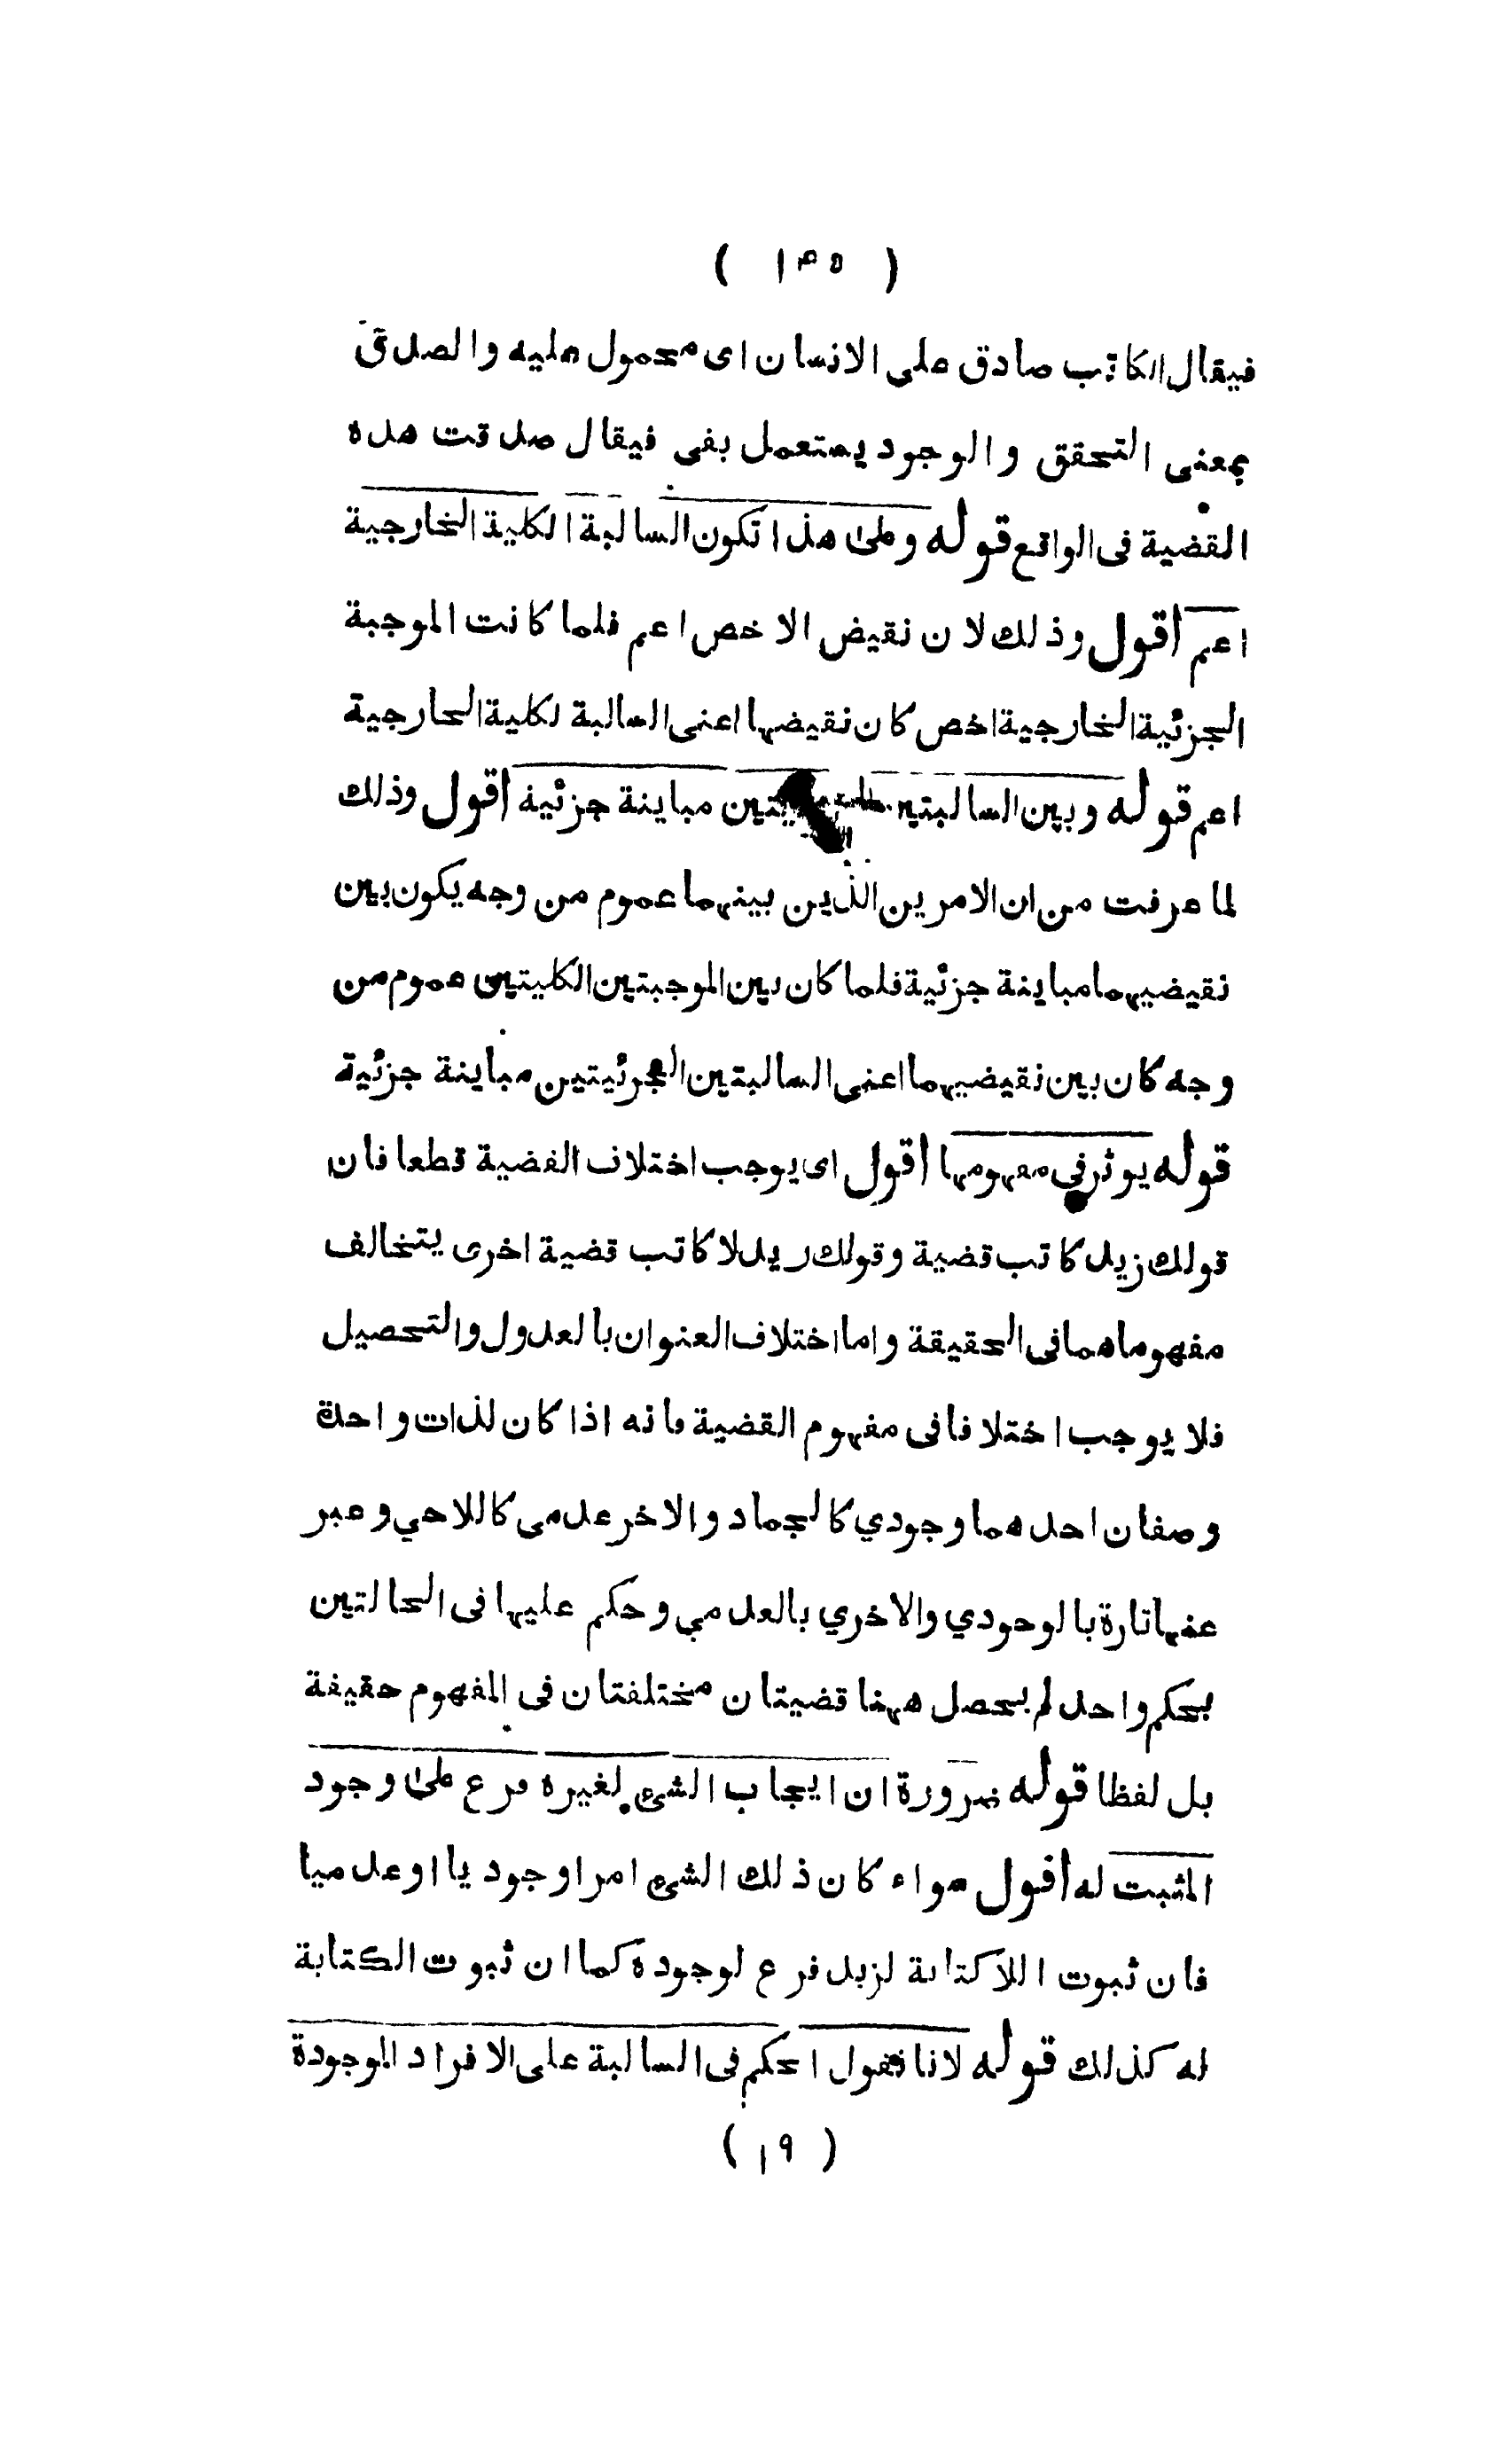 ( ١٣٥ )
فيقال الكاتب صادق على الانسان اى محمول عليه والصدق
بمعنى التحقق والوجود يستعمل بفى فيقال صدقت هذه
القضية فى الواقع قوله وعلى هذا تكون السالبة الكلية الخارجية
اعم اقول وذلك لان نقيض الاخص اعم فلما كانت الموجبة
الجزئية الخارجية اخص كان نقيضها اعنى السالبة لكلية الحارجية
اعم قوله وبين السالبتين مباينة جزئية اقول وذلك
لما عرفت من ان الامرين اللذين بينهما عموم من وجه يكون بين
نقيضيهما مباينة جزئية فلما كان بين الموجبتين الكليتين عموم من
وجه كان بين نقيضيهما اعنى السالبتين الجزئيتين مباينة جزئية
قوله يوثر في مفهومها اقول اى يوجب اختلاف القضية قطعا فان
قولك زيد كاتب قضية وقولك زيد لاكاتب قضية اخرى يتخالف
مفهوماهما فى الحقيقة واما اختلاف العنوان بالعدول والتحصيل
فلا يوجب اختلافا فى مفهوم القضية فانه اذا كان لذات واحدة
وصفان احدهما وجودي كالجماد والاخر عدمى كاللاحي وعبر
عنها تارة بالوجودي والاخري بالعدمي وحكم عليها فى الحالتين
بحكم واحد لم يحصل ههنا قضيتان مختلفتان فى المفهوم حقيقة
بل لفظا قوله ضرورة ان ايجاب الشئ لغيره فرع على وجود
المثبت له اقول سواء كان ذلك الشئ امرا وجوديا او عدميا
فان ثبوت اللاكتابة لزيد فرع لوجوده كما ان ثبوت الكتابة
له كذلك قوله لانا نقول الحكم فى السالبة على الافراد الموجودة
( ١٩ )